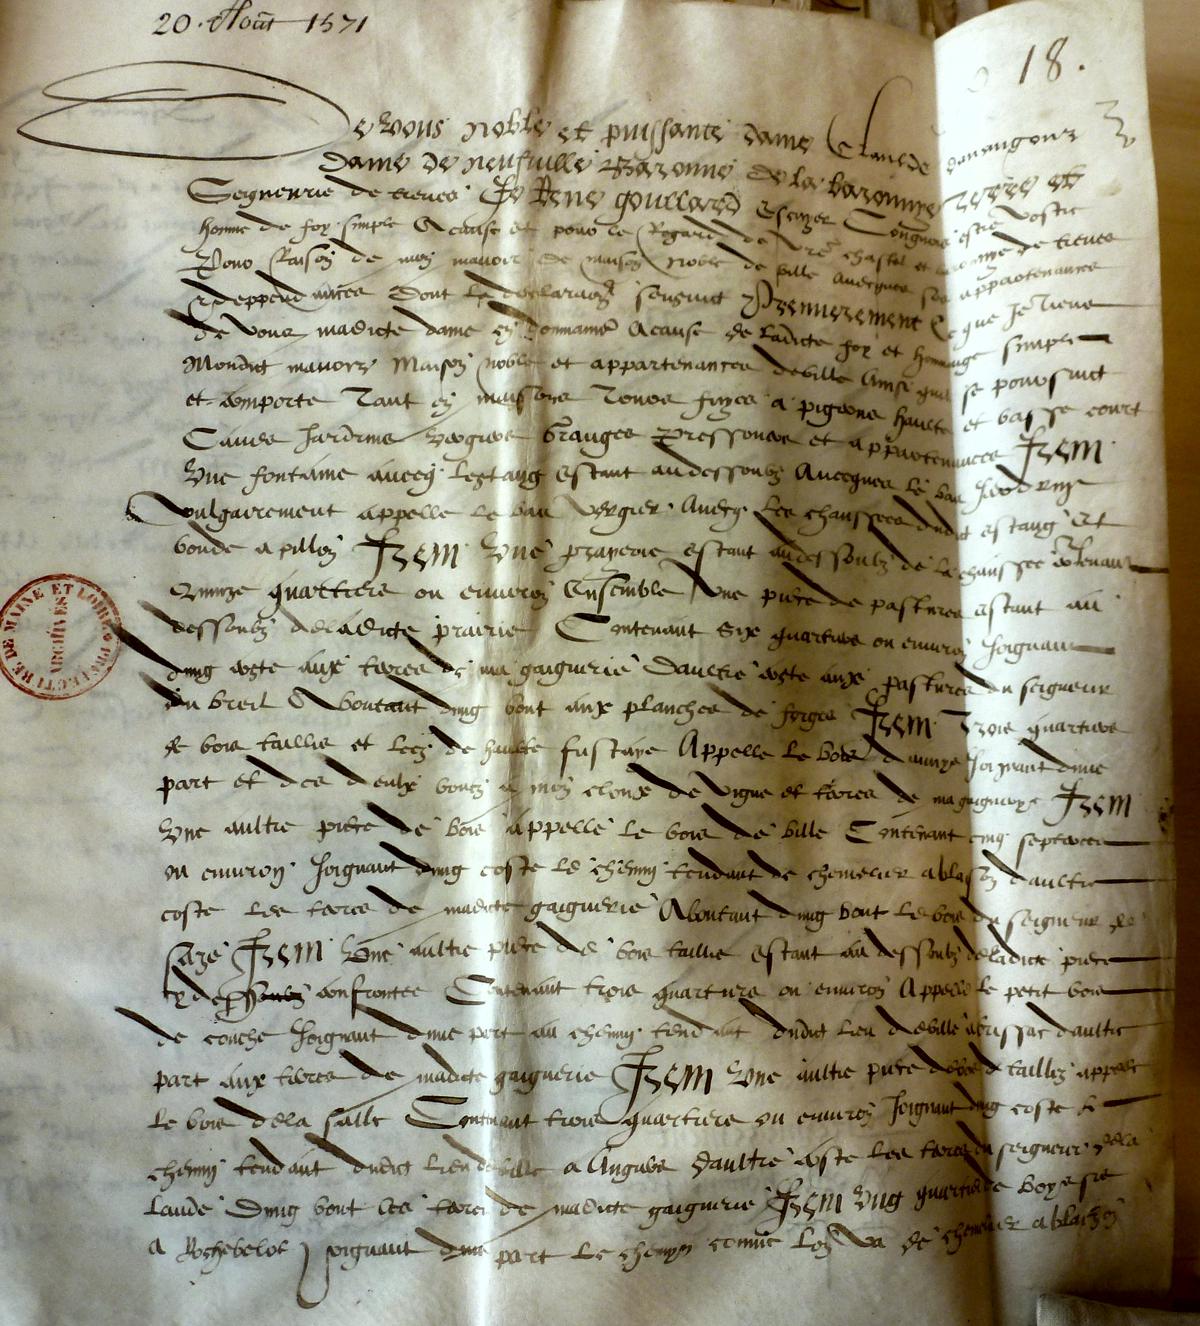 20 Aout 1571
18.
De Vous noble et puissante dame Claude davaugour
dame de neufville Baronne de la baronnye terre et
Seigneurie de treves Je Rene goullard Escuyer Congnois estre vostre
homme de foy simple A cause et pour le Regard de vre chastel et baronnye de treves
Pour Raison de mon manoir et maison noble de ville avecques ses appartenances
et deppendances Dont la declaraon sensuict Premierement Ce que Je tiens
de vous madicte dame en dommaine A cause de ladicte foy et hommage simple
Mondict manoir Maison noble et appartenances de ville Ainsi quil se poursuict
et comporte Tant en maisons fuyes a pigeons haulte et basse court
Caves Jardrins vergiers Granges Pressouers et appartenances Item
Une fontaine avecq lestang estant au dessoubz Avecques le bau Jardrin
vulgairement appelle le bau Vergier Avecq les chaussees dudict estang Et
bonde a pillon Item Une prayerie estant au dessoubz de la chaussee Contenant
Quinze quartiers ou environ Ensemble Une piece de pastures estant au
dessoubz de ladicte prairie Contenant Six quartiers ou environ Joignant
dung coste aux terres de ma gaignerie Daultre coste aux pastures du seigneur
du breil Aboutant dung bout aux planches de forges Item Trois quartiers
de bois taillis et de haulte fustaye Appelle le bois Joignant dune
part et des deulx boutz a mon cloux de vigne et terres de ma gaignerye Item
Une aultre piece de bois appelle le bois de ville Contenant cinq septrees
ou environ Joignant dung coste le chemin tendant de chemelier a blaison daultre
coste les terres de madicte gaignerie Aboutant dung bout le bois du seigneur de
saze Item Une aultre piece de bois taillis estant au dessoubz de ladicte piece
cy dessus confrontee Contenant trois quartiers ou environ Appelle le petit bois
de couche Joignant dune part au chemin tendant dudict lieu de ville a brissac daultre
part aux terres de madicte gaignerie Item Une aultre piece de bois taillis appelle
le bois de la salle Contenant trois quartiers ou environ Joignant dung coste le
chemin tendant dudict lieu de ville a Angers daultre coste les terres du seigneur de la
lande Dung bout les terres de madicte gaignerie Item Ung quartier de boys sis
a Rochebelot Joignant dune part le chemyn comme lon va de chemelier a blaison
PREFECTURE DE MAINE ET LOIRE
ARCHIVES